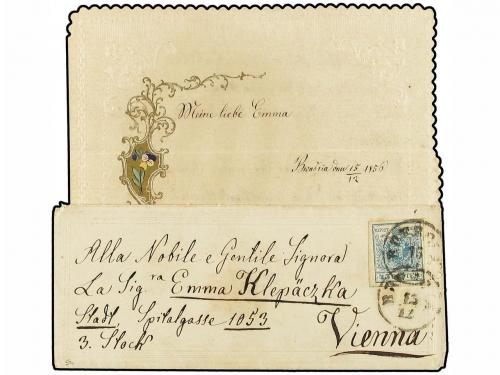 Meine liebe Emma
15/12 1856
Alla Nobile e Gentile Signora
La Sig.ra Emma Klepàczka
Stadt, Spitalgasse 1053
3. Stock
Vienna